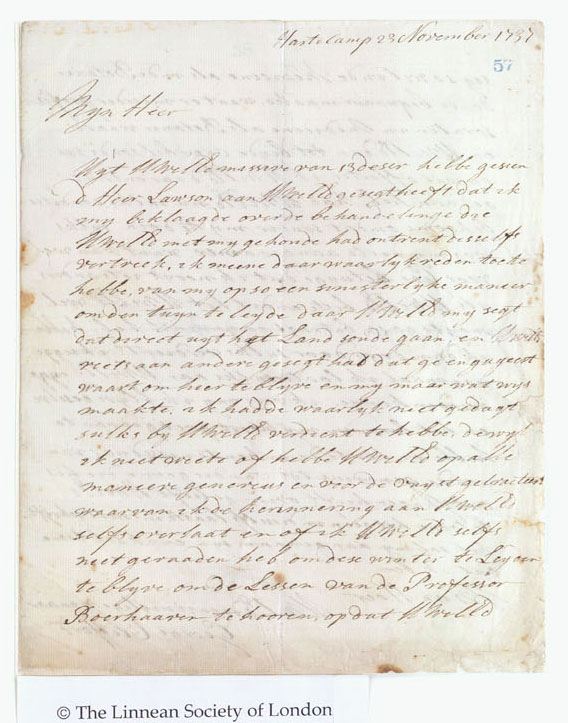 Hartecamp 23 November 1737
57
Myn Heer
Uyt UWelEd missive van 13 deser hebbe gesien
d Heer Lawson aan UWelEd gesegt heeft dat ik
my beklaagde over de behandelinge die
UWelEd met my gehouden had ontrent desselfs
vertrek, ik meene daar waarlyk reden toe te
hebbe, van my op so een sinisterlyke manier
om den tuyn te leyde daar UWelEd my segt
dat direct uyt het Land soude gaan, en UWelEd
reets aan andere gesegt had dat ge engageert
waart om hier te blyve en my maar wat wys
maakte. ik hadde waarlyk niet gedagt
sulks by UWelEd verdient te hebbe, dewyl
ik niet weete of hebbe UWelEd op alle
maniere genereus en voor de vuyst
waarvan ik de herinnering aan UWelEd
selfs overlaat en of ik UWelEd selfs
niet geraaden heb om dese winter te Leyden
te blyve om de Lessen van de Professor
Boerhaaven te hooren, op dat UWelEd
© The Linnean Society of London